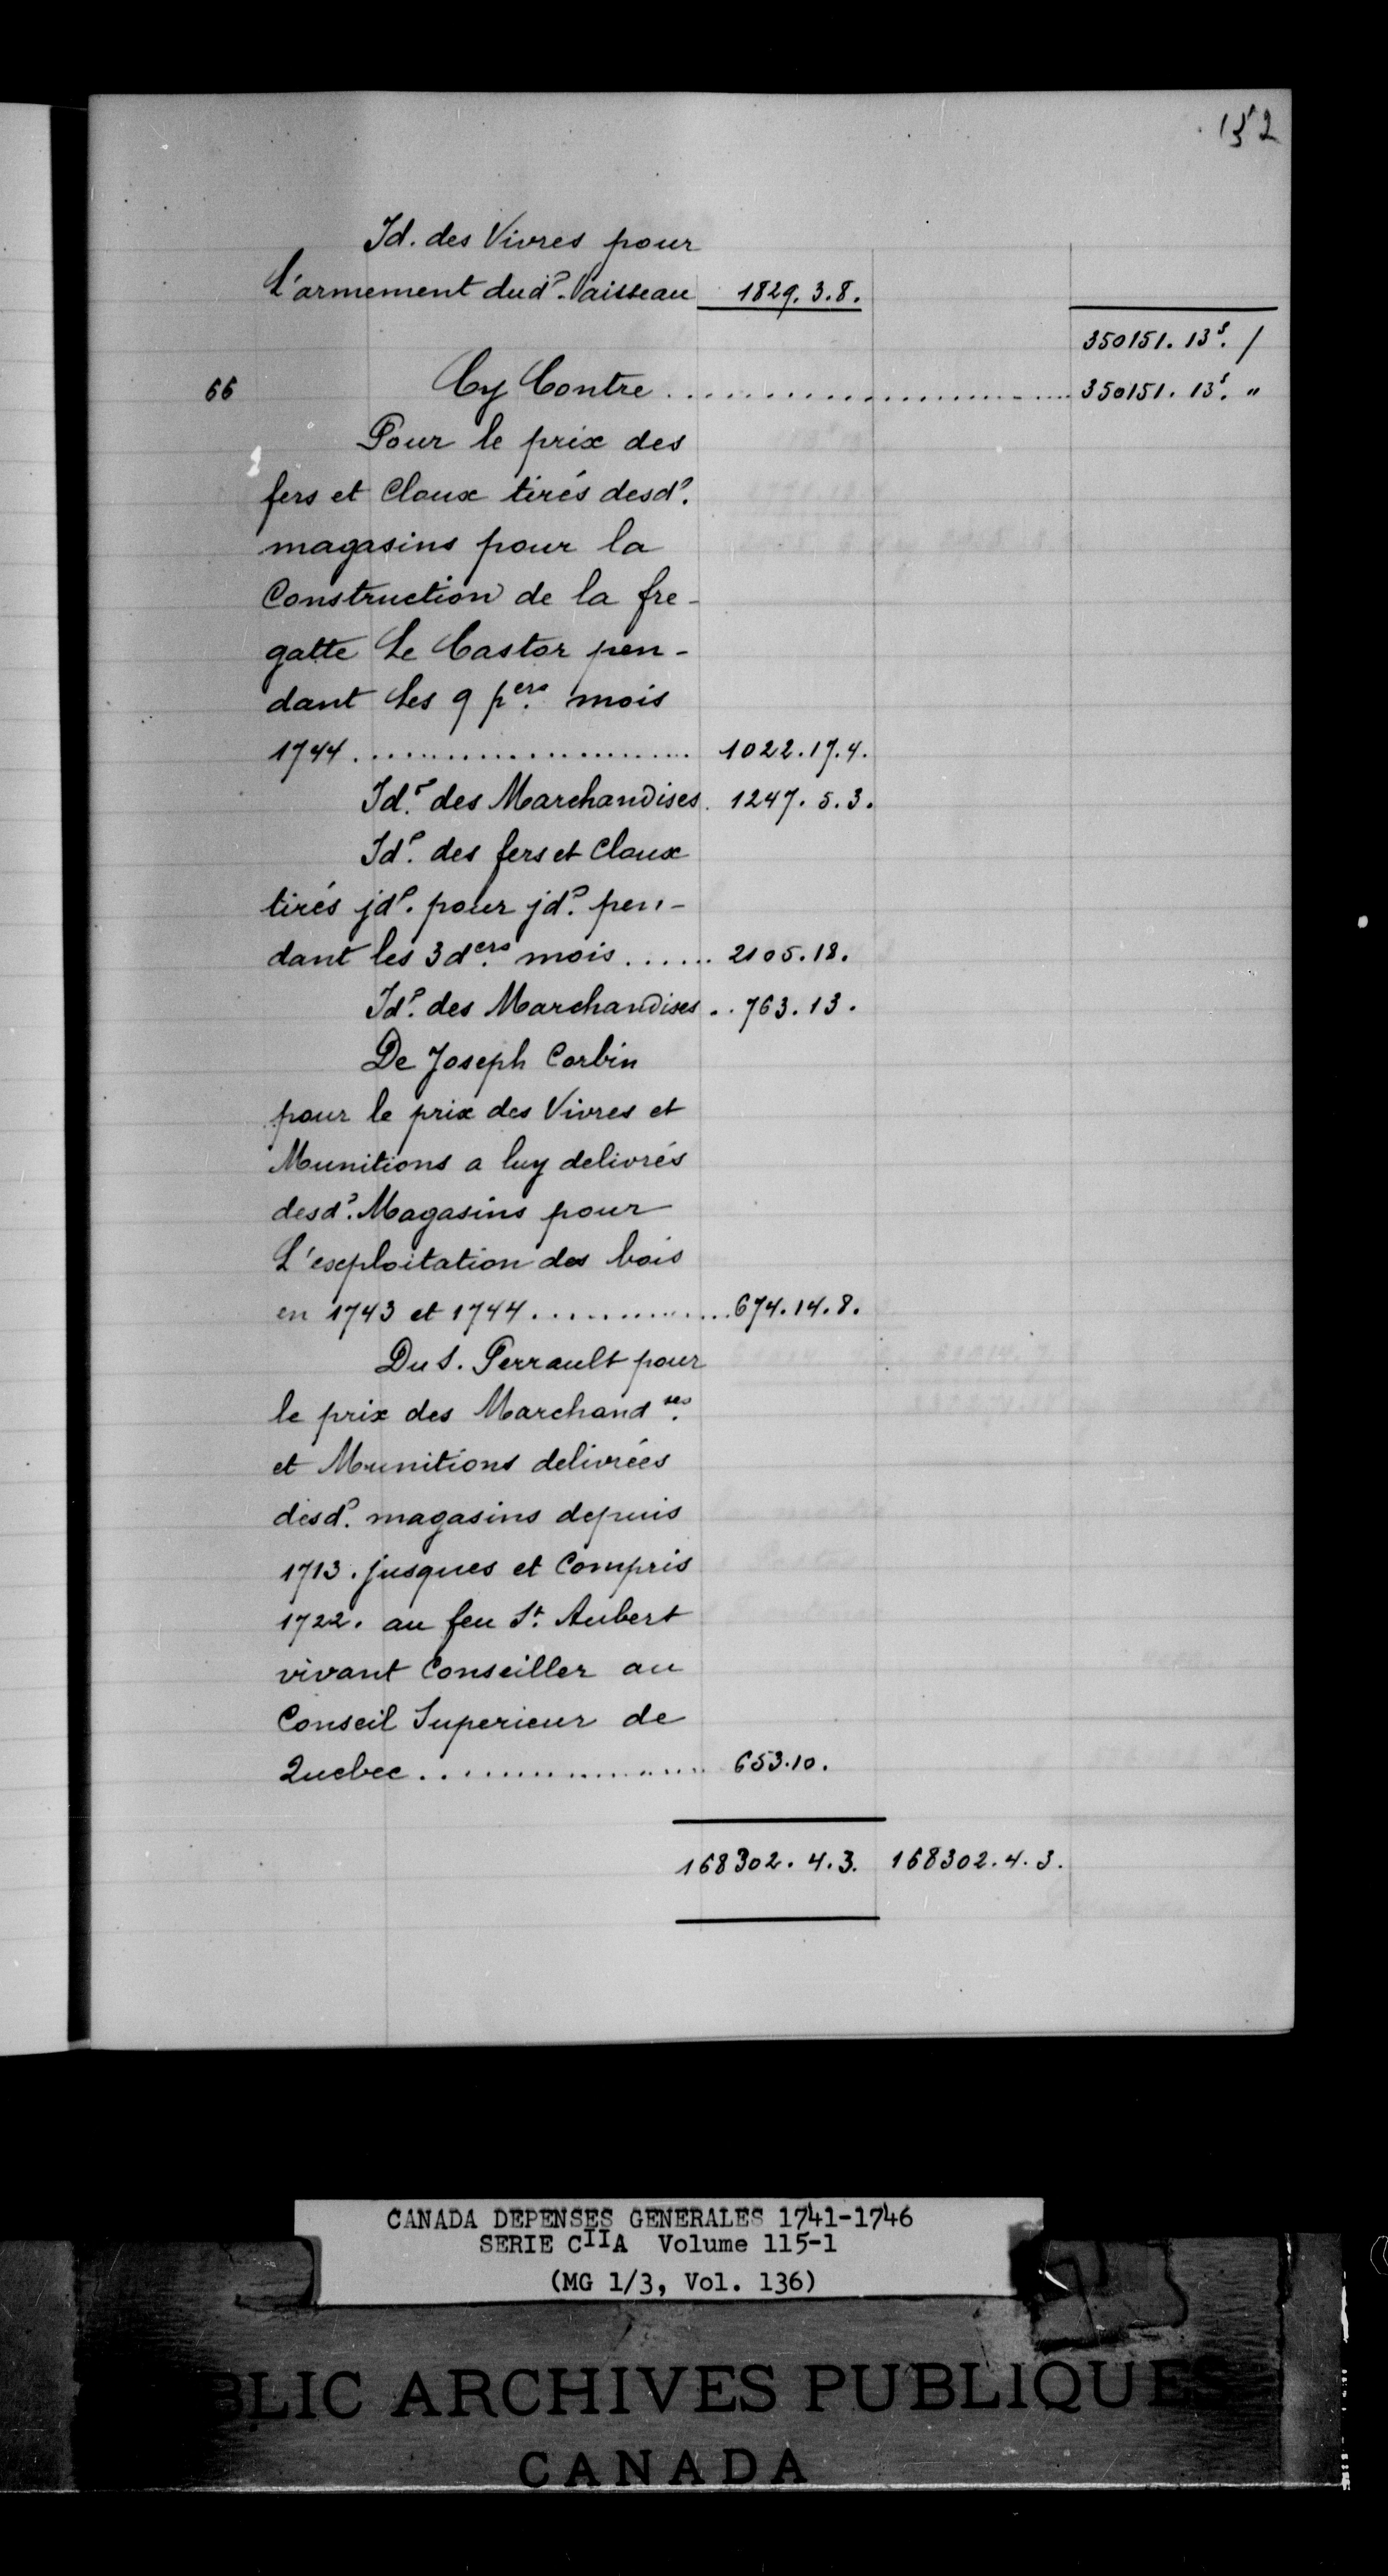 152
Id. des Vivres pour
L'armement dud? Vaisseau 1829. 3. 8.
350151. 13s. /
66 Cy Contre ........................ 350151. 13s. "
Pour le prix des
fers et Cloux tirés desd?
magasins pour la
Construction de la fre-
gatte Le Castor pen-
dant Les 9 pers mois
1744 ........................ 1022. 17. 4.
Id? des Marchandises. 1247. 5. 3.
Id? des fers et Cloux
tirés jd? pour jd? pen-
dant les 3 ders mois ...... 2105. 18.
Id? des Marchandises .. 763. 13.
De Joseph Corbin
pour le prix des Vivres et
Munitions a luy delivrés
desd? Magasins pour
L'exploitation des bois
en 1743 et 1744 .............. 674. 14. 8.
Du S. Perrault pour
le prix des Marchandses
et Munitions delivrées
desd? magasins depuis
1713. jusques et Compris
1722. au feu Sr. Aubert
vivant Conseiller au
Conseil Superieur de
Quebec .................... 653. 10.
168302. 4. 3. 168302. 4. 3.
CANADA DEPENSES GENERALES 1741-1746
SERIE CIIA Volume 115-1
(MG 1/3, Vol. 136)
BLIC ARCHIVES PUBLIQUES
CANADA